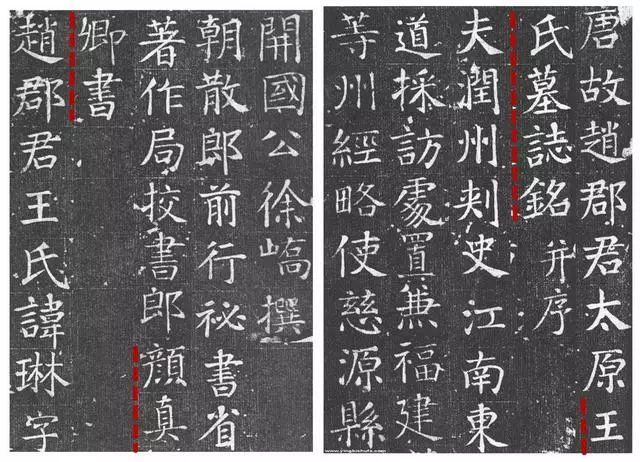 唐故趙郡君太原王
氏墓誌銘 并序
夫潤州刾史江南東
道採訪處置兼福建
等州經略使慈源縣
開國公徐嶠撰
朝散郎前行祕書省
著作局挍書郎顔真
卿書
趙郡君王氏諱琳字
www.yingbishufa.com